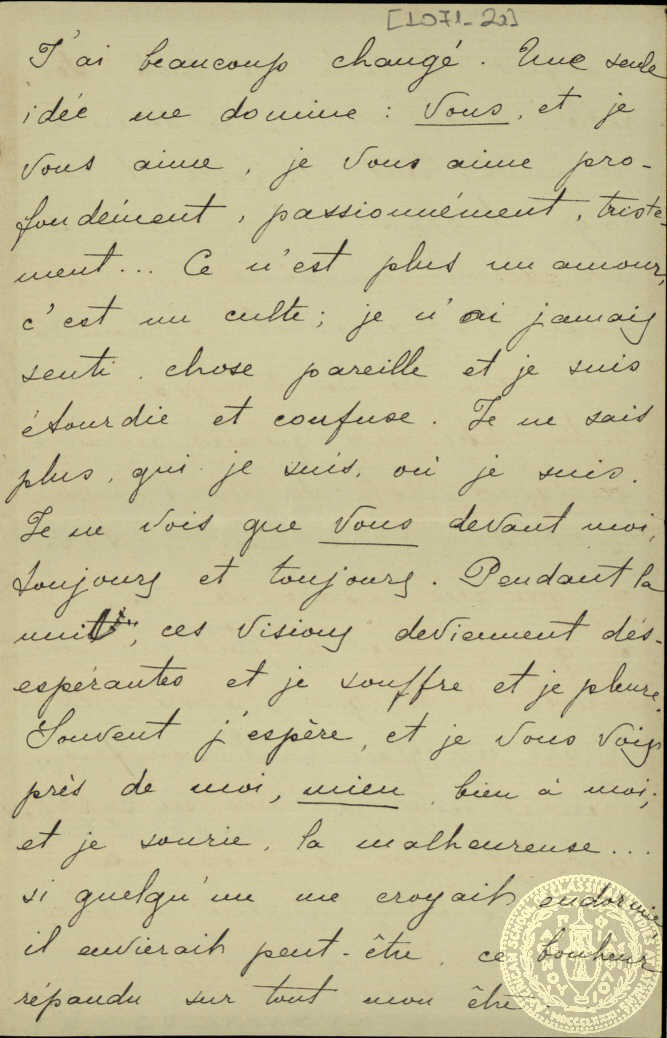 [1071-22]
J'ai beaucoup changé. Une seule
idée me domine : Vous, et je
vous aime, je vous aime pro-
fondément, passionnément, triste-
ment... Ce n'est plus un amour,
c'est un culte; je n'ai jamais
senti chose pareille et je suis
étourdie et confuse. Je ne sais
plus, qui je suis, où je suis.
Je ne vois que Vous devant moi,
toujours et toujours. Pendant la
nuit, ces visions deviennent dés-
espérantes et je souffre et je pleure.
Souvent j'espère, et je vous vois
près de moi, mien, bien à moi;
et je sourie, la malheureuse...
si quelqu'un me croyait endormie,
il envierait peut-être ce bonheur
répandu sur tout mon être
AMERICAN SCHOOL OF CLASSICAL STUDIES
MDCCCLXXXI